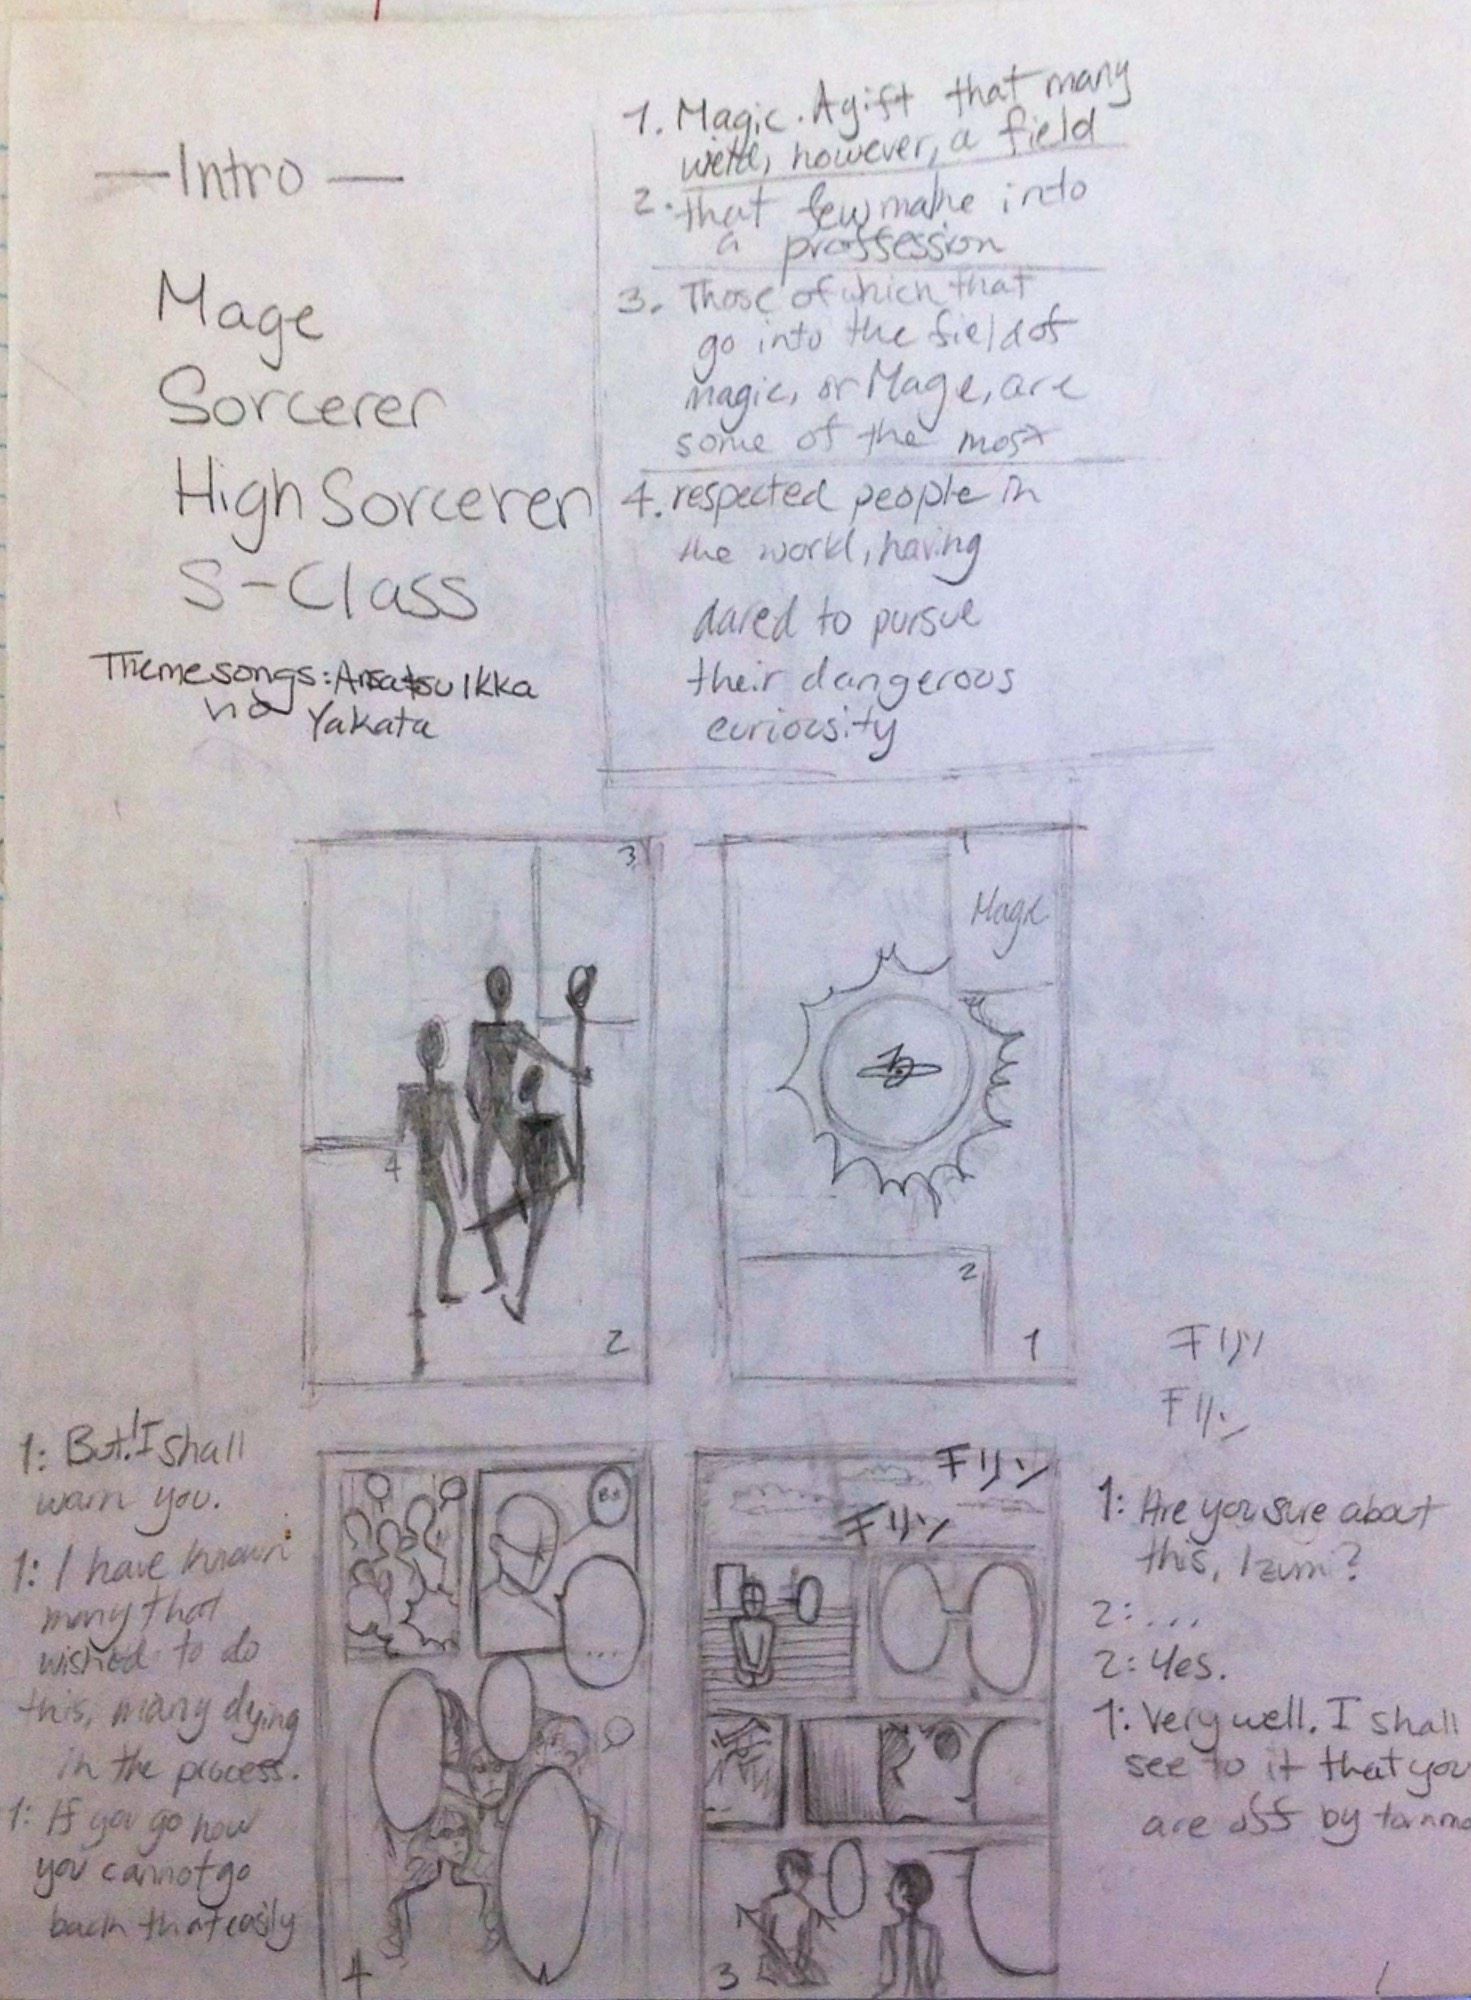 —Intro—
Mage
Sorcerer
High Sorcerer
S-Class
Themesongs: Ansatsu Ikka
no Yakata
1. Magic. A gift that many
wield, however, a field
2. that few make into
a proffession
3. Those of which that
go into the field of
magic, or Mage, are
some of the most
4. respected people in
the world, having
dared to pursue
their dangerous
curiousity
3
4
2
1
Magic
2
1
チリン
チリン
1: But! I shall
warn you.
1: I have known
many that
wished to do
this, many dying
in the process.
1: If you go now
you cannot go
back that easily
...
4
チリン
チリン
3
1: Are you sure about
this, Izumi?
2: ...
2: Yes.
1: Very well. I shall
see to it that you
are off by